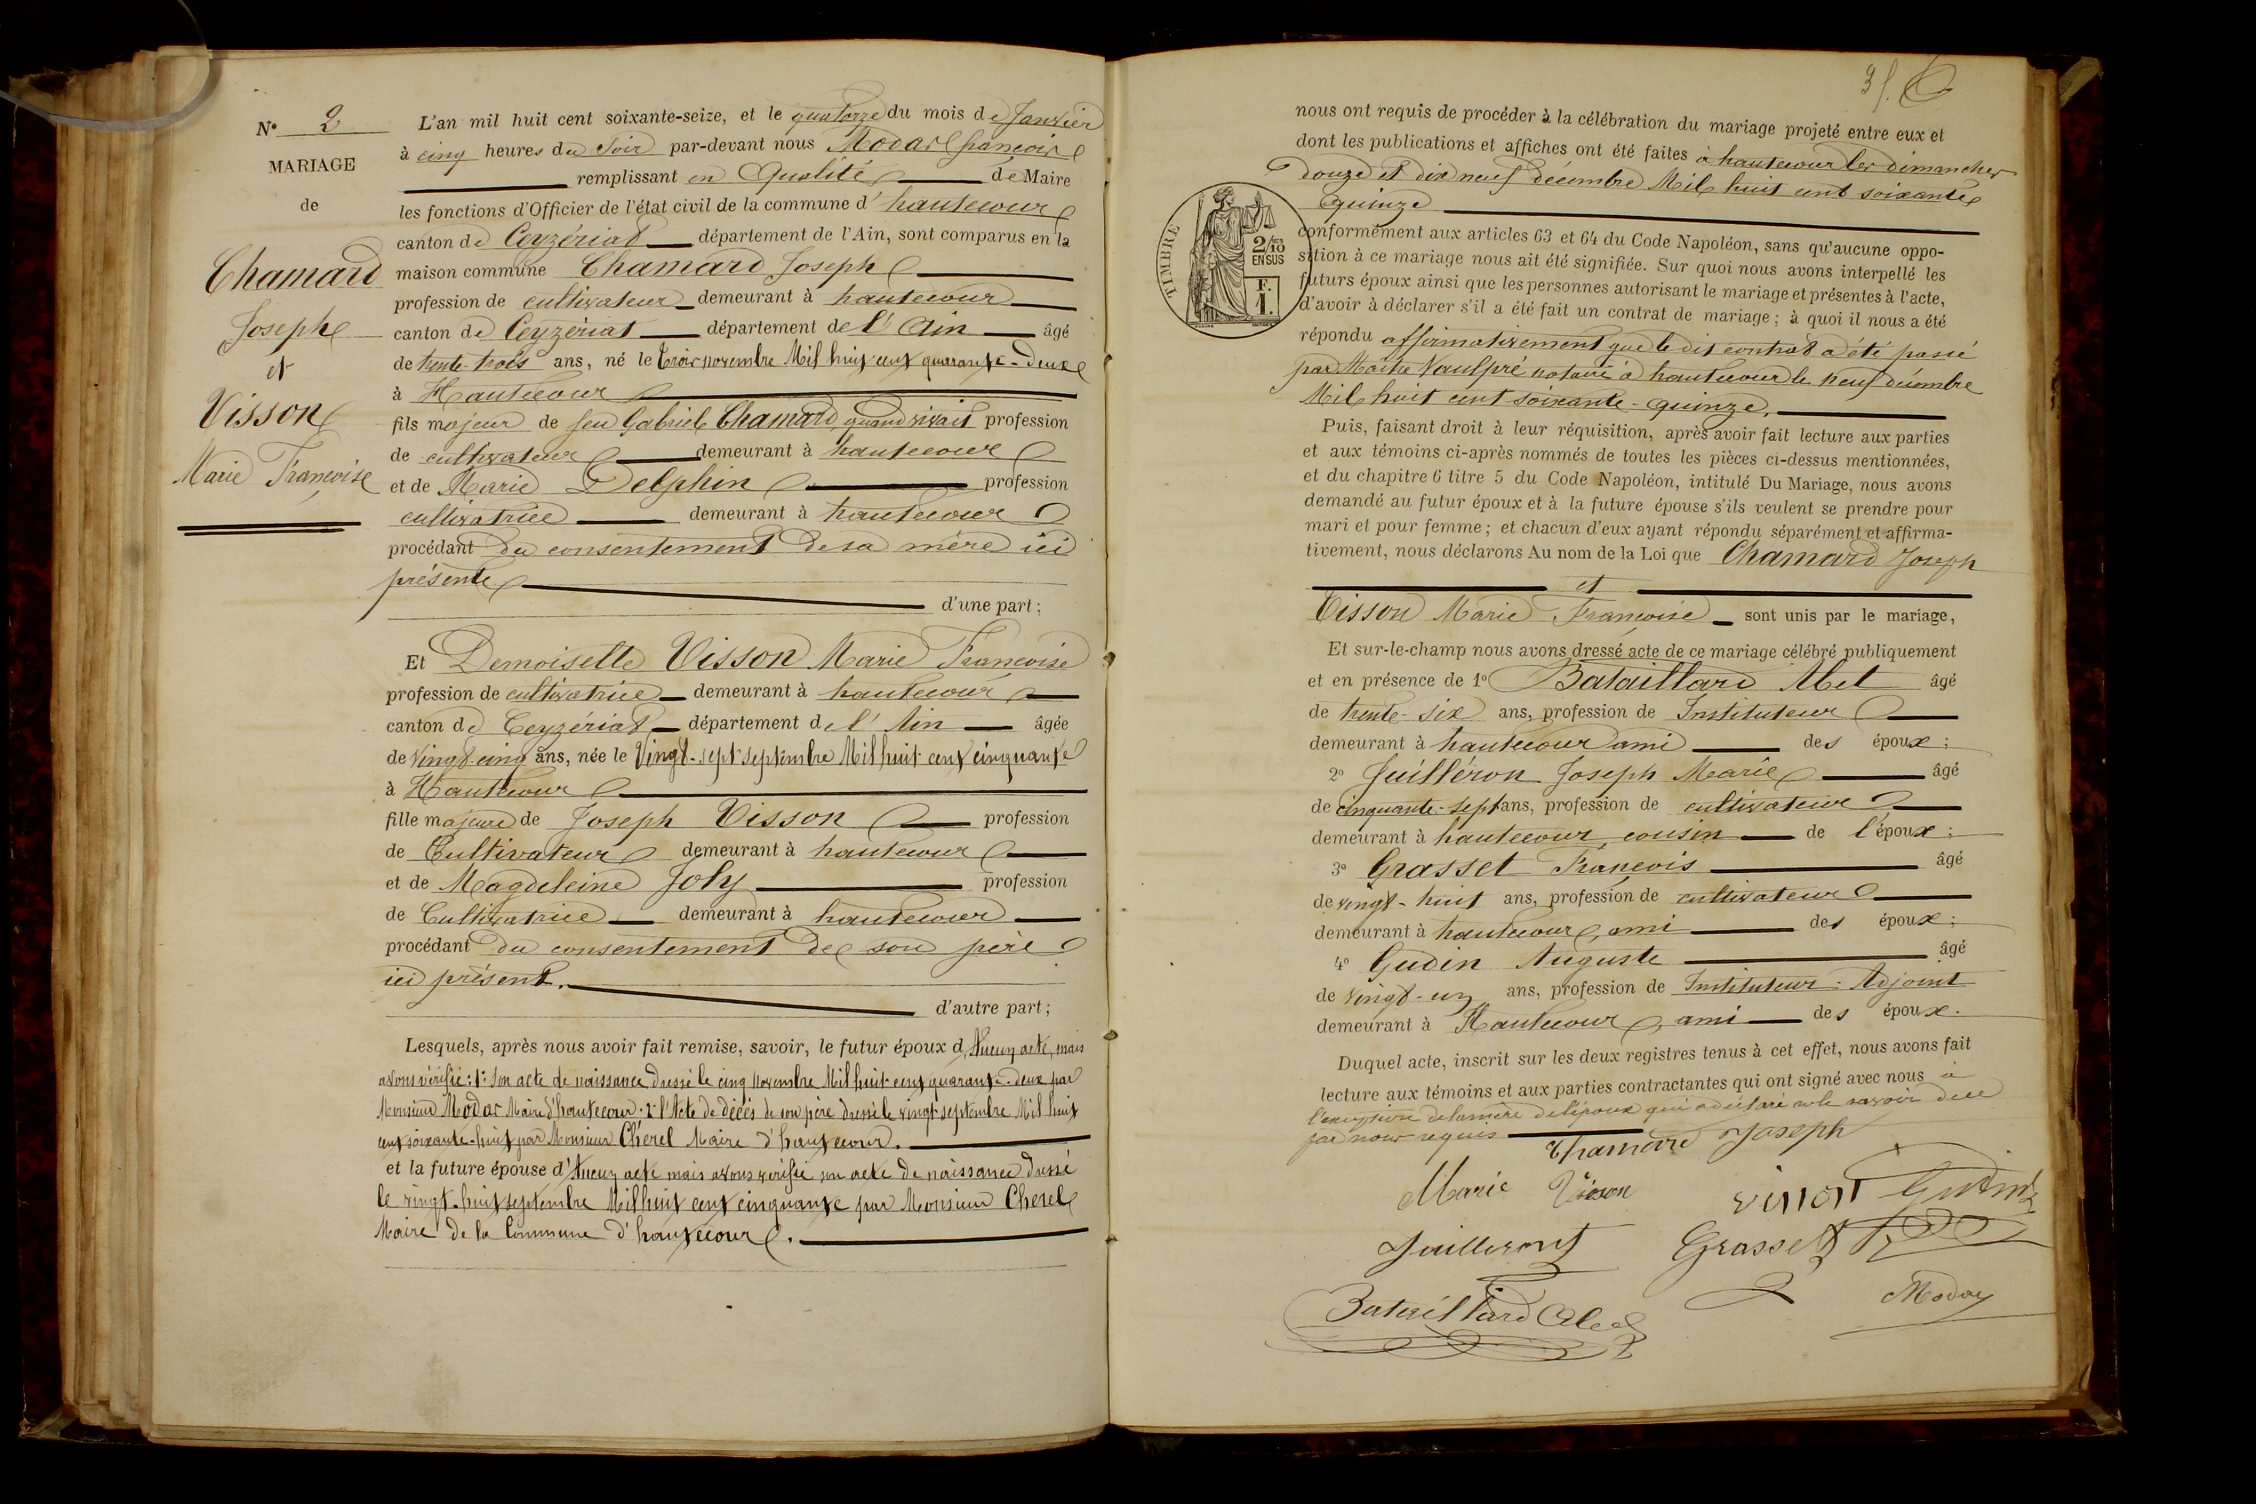 N° 2
MARIAGE
de
Chamard
Joseph
et
Visson
Marie Françoise
L'an mil huit cent soixante-seize, et le quatorze du mois de Janvier
à cinq heures du Soir par-devant nous Modas françois
remplissant en Qualité de Maire
les fonctions d'Officier de l'état civil de la commune d'hautecour
canton de Ceyzériat département de l'Ain, sont comparus en la
maison commune Chamard Joseph
profession de cultivateur demeurant à hautecour
canton de Ceyzériat département de l'Ain âgé
de trente-trois ans, né le trois novembre Mil huit cent quarante-deux
à Hautecour
fils majeur de feu Gabriel Chamard quand vivait profession
de cultivateur demeurant à hautecour
et de Marie Delphin profession
cultivatrice demeurant à hautecour
procédant du consentement de sa mère ici
présente
d'une part ;
Et Demoiselle Visson Marie Françoise
profession de cultivatrice demeurant à hautecour
canton de Ceyzériat département de l'Ain âgée
de vingt-cinq ans, née le Vingt-sept septembre Mil huit cent cinquante
à Hautecour
fille majeure de Joseph Visson profession
de Cultivateur demeurant à hautecour
et de Magdeleine Joly profession
de Cultivatrice demeurant à hautecour
procédant du consentement de son père
ici présent.
d'autre part ;
Lesquels, après nous avoir fait remise, savoir, le futur époux d'Aucun acte, mais
avons vérifié : 1° Son acte de naissance dressé le cinq novembre Mil huit cent quarante-deux par
Monsieur Modas Maire d'hautecour. 2° l'Acte de décès de son père dressé le vingt septembre Mil huit
cent soixante-huit par Monsieur Chérel Maire d'hautecour.
et la future épouse d'Aucun acte mais avons vérifié son acte de naissance dressé
le vingt-huit septembre Mil huit cent cinquante par Monsieur Cherel
Maire de la Commune d'hautecour.
3f.
TIMBRE
2/10
EN SUS
F.
1.
nous ont requis de procéder à la célébration du mariage projeté entre eux et
dont les publications et affiches ont été faites à hautecour les dimanches
douze et dix neuf décembre Mil huit cent soixante
quinze
conformément aux articles 63 et 64 du Code Napoléon, sans qu'aucune oppo-
sition à ce mariage nous ait été signifiée. Sur quoi nous avons interpellé les
futurs époux ainsi que les personnes autorisant le mariage et présentes à l'acte,
d'avoir à déclarer s'il a été fait un contrat de mariage ; à quoi il nous a été
répondu affirmativement que le dit contrat a été passé
par Maître Vaulpré notaire à hautecour le neuf décembre
Mil huit cent soixante-quinze.
Puis, faisant droit à leur réquisition, après avoir fait lecture aux parties
et aux témoins ci-après nommés de toutes les pièces ci-dessus mentionnées,
et du chapitre 6 titre 5 du Code Napoléon, intitulé Du Mariage, nous avons
demandé au futur époux et à la future épouse s'ils veulent se prendre pour
mari et pour femme ; et chacun d'eux ayant répondu séparément et affirma-
tivement, nous déclarons Au nom de la Loi que Chamard Joseph
et
Visson Marie Françoise sont unis par le mariage,
Et sur-le-champ nous avons dressé acte de ce mariage célébré publiquement
et en présence de 1° Bataillard Abel âgé
de trente-six ans, profession de Instituteur
demeurant à hautecour ami des époux ;
2° Juilléron Joseph Marie âgé
de cinquante-sept ans, profession de cultivateur
demeurant à hautecour, cousin de l'époux ;
3° Grasset François âgé
de vingt-huit ans, profession de cultivateur
demeurant à hautecour, ami des époux ;
4° Gudin Auguste âgé
de vingt-un ans, profession de Instituteur-Adjoint
demeurant à Hautecour, ami des époux.
Duquel acte, inscrit sur les deux registres tenus à cet effet, nous avons fait
lecture aux témoins et aux parties contractantes qui ont signé avec nous à
l'exception de la mère de l'époux qui a déclaré ne le savoir de ce
par nous requis
Chamard Joseph
Marie Visson
Visson
Gudin
Juilleront
Grasset
Bataillard Abel
Modas